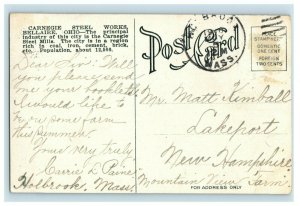 CARNEGIE STEEL WORKS,
BELLAIRE, OHIO—The principal
industry of this city is the Carnegie
Steel Mills. The city is in a region
rich in coal, iron, cement, brick,
etc. Population, about 15,000.
Post Card
MASS.
PLACE
STAMP
DOMESTIC
ONE CENT
FOREIGN
TWO CENTS
Dear Sir: Will
you please send
me your booklet
would like to
try some farm
this summer.
Yours very truly
Carrie L. Paine
Holbrook, Mass.
Mr. Matt Kimball
Lakeport
New Hampshire
Mountain View Farm
FOR ADDRESS ONLY